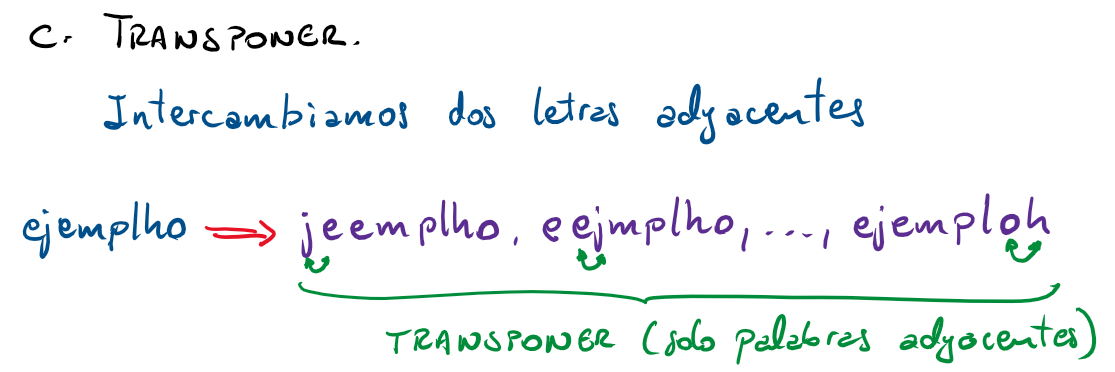 C. TRANSPONER.
Intercambiamos dos letras adyacentes
ejemplho ⇒ jeemplho, eejmplho, ..., ejemploh
TRANSPONER (solo palabras adyacentes)